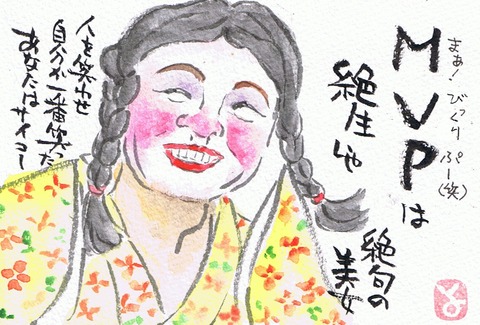 まぁ! びっくり ぷー(笑)
MVPは
絶句の
美女
人を笑わせ
自分が一番笑た
あなたはサイコー